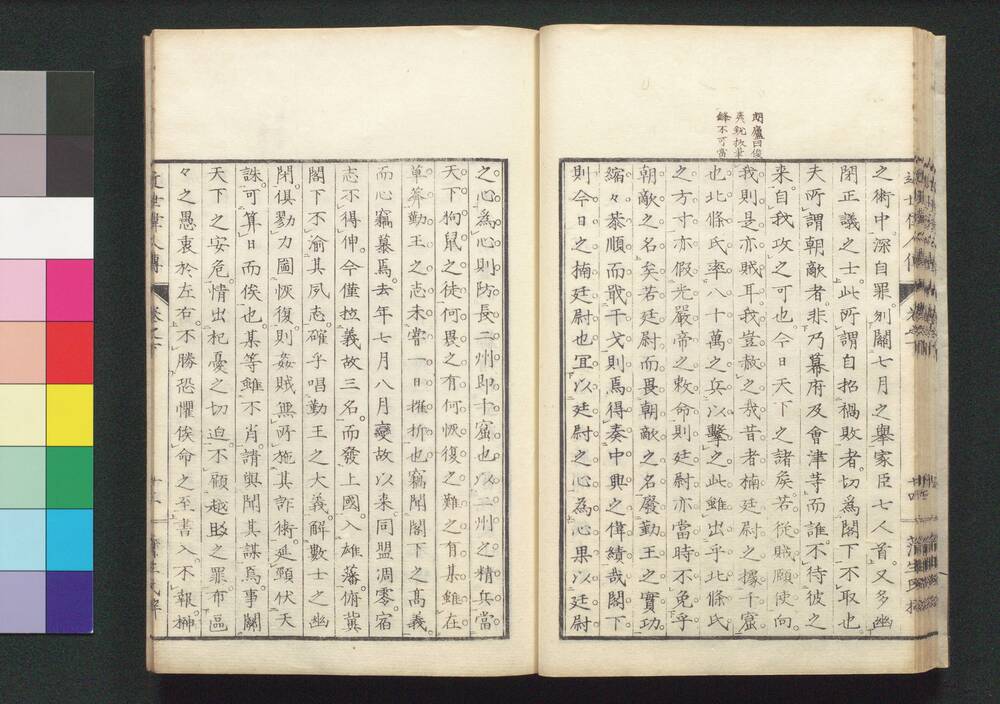 之術中深自罪列關七月之擧家臣七人首又多幽
閉正議之士此所謂自招禍敗者切爲閣下不取也
夫所謂朝敵者非乃幕府及會津等而誰不待彼之
來自我攻之可也今日天下之諸矦若從賊願使向
我則是亦賊耳我豈赦之哉昔者楠廷尉之據千窟
也北條氏率八十萬之兵以擊之此雖出乎北條氏
之方寸亦假光嚴帝之敕命則廷尉亦當時不免乎
朝敵之名矣若廷尉而畏朝敵之名廢勤王之實功
縮々恭順而戢干戈則焉得奏中興之偉績哉閣下
則今日之楠廷尉也宜以廷尉之心爲心果以廷尉
閒廬曰俊
爽銳拔筆
鋒不可當
之心爲心則防長二州卽十窟也以二州之精兵當
天下狗鼠之徒何畏之有何恢復之難之有某雖在
草莽勤王之志未嘗一日摧折也竊聞閣下之高義
而心竊慕焉去年七月八月變故以來同盟凋零宿
志不得伸今僅拉義故三名而發上國入雄藩俯冀
閣下不渝其夙志確乎唱勤王之大義解數士之幽
閉俱勠力圖恢復則姦賊無所施其詐術延頸伏天
誅可算日而俟也某等雖不肖請與聞其謀焉事關
天下之安危情出杞憂之切迫不顧越趄之罪布區
々之愚衷於左右不勝恐懼俟命之至書入不報榊
近世偉人傳 卷之下